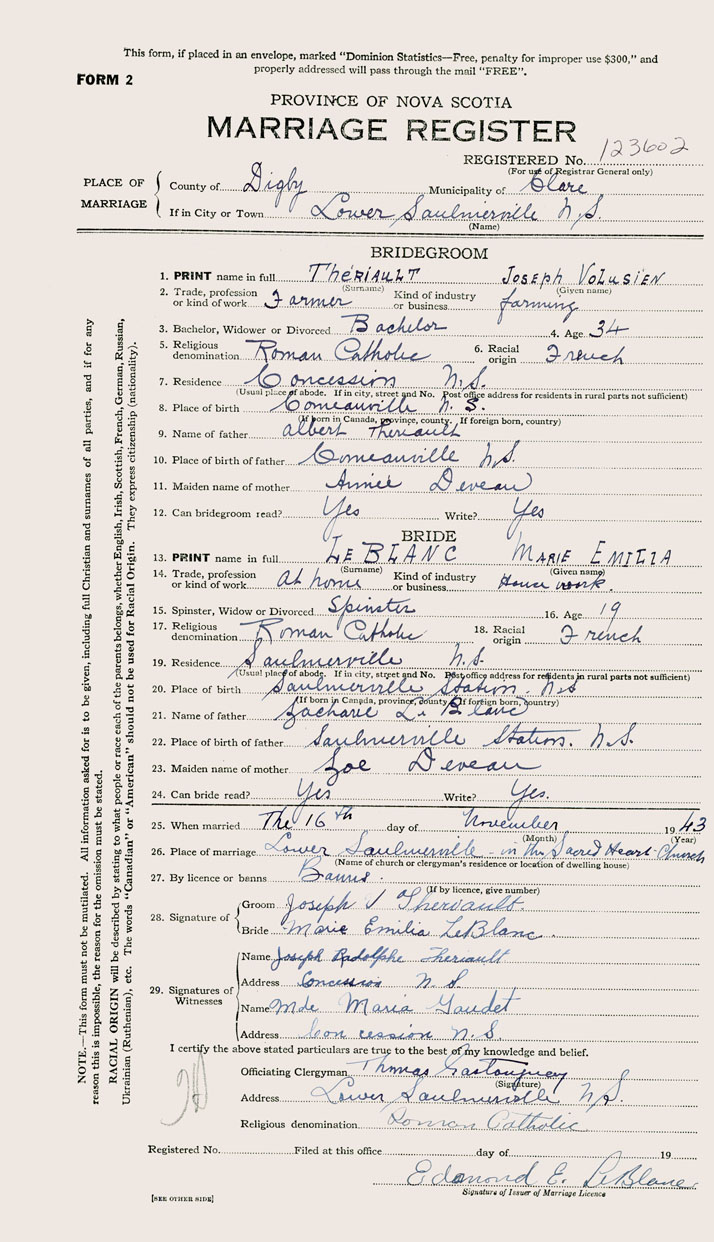 This form, if placed in an envelope, marked "Dominion Statistics—Free, penalty for improper use $300," and
properly addressed will pass through the mail "FREE".
FORM 2
PROVINCE OF NOVA SCOTIA
MARRIAGE REGISTER
REGISTERED No. 123602
(For use of Registrar General only)
PLACE OF MARRIAGE
County of Digby Municipality of Clare
If in City or Town Lower Saulnierville N.S.
(Name)
BRIDEGROOM
1. PRINT name in full THÉRIAULT JOSEPH VOLUSIEN
(Surname) (Given name)
2. Trade, profession or kind of work Farmer Kind of industry or business farming
3. Bachelor, Widower or Divorced Bachelor 4. Age 34
5. Religious denomination Roman Catholic 6. Racial origin French
7. Residence Concession N.S.
(Usual place of abode. If in city, street and No. Post office address for residents in rural parts not sufficient)
8. Place of birth Comeauville N.S.
(If born in Canada, province, county. If foreign born, country)
9. Name of father Albert Theriault
10. Place of birth of father Comeauville N.S.
11. Maiden name of mother Aimée Deveau
12. Can bridegroom read? Yes Write? Yes
BRIDE
13. PRINT name in full LE BLANC MARIE EMILIA
(Surname) (Given name)
14. Trade, profession or kind of work At home Kind of industry or business House work.
15. Spinster, Widow or Divorced Spinster 16. Age 19
17. Religious denomination Roman Catholic 18. Racial origin French
19. Residence Saulnierville N.S.
(Usual place of abode. If in city, street and No. Post office address for residents in rural parts not sufficient)
20. Place of birth Saulnierville Station. N.S
(If born in Canada, province, county. If foreign born, country)
21. Name of father Zacharie Le Blanc
22. Place of birth of father Saulnierville Station. N.S.
23. Maiden name of mother Zoe Deveau
24. Can bride read? Yes Write? Yes.
25. When married The 16th day of November 1943
(Month) (Year)
26. Place of marriage Lower Saulnierville - in the Sacred Heart Church
(Name of church or clergyman's residence or location of dwelling house)
27. By licence or banns Banns.
(If by licence, give number)
28. Signature of
Groom Joseph V Theriault.
Bride Marie Emilia LeBlanc.
29. Signatures of Witnesses
Name Joseph Rodolphe Theriault
Address Concession N S
Name Mde Maria Gaudet
Address Concession N.S.
I certify the above stated particulars are true to the best of my knowledge and belief.
Officiating Clergyman Thomas
(Signature)
Address Lower Saulnierville N.S.
Religious denomination Roman Catholic
Registered No. Filed at this office day of 19
Edmond E. LeBlanc
Signature of Issuer of Marriage Licence
[SEE OTHER SIDE]
NOTE.—This form must not be mutilated. All information asked for is to be given, including full Christian and surnames of all parties, and if for any
reason this is impossible, the reason for the omission must be stated.
RACIAL ORIGIN will be described by stating to what people or race each of the parents belongs, whether English, Irish, Scottish, French, German, Russian,
Ukrainian (Ruthenian), etc. The words "Canadian" or "American" should not be used for Racial Origin. They express citizenship (nationality).